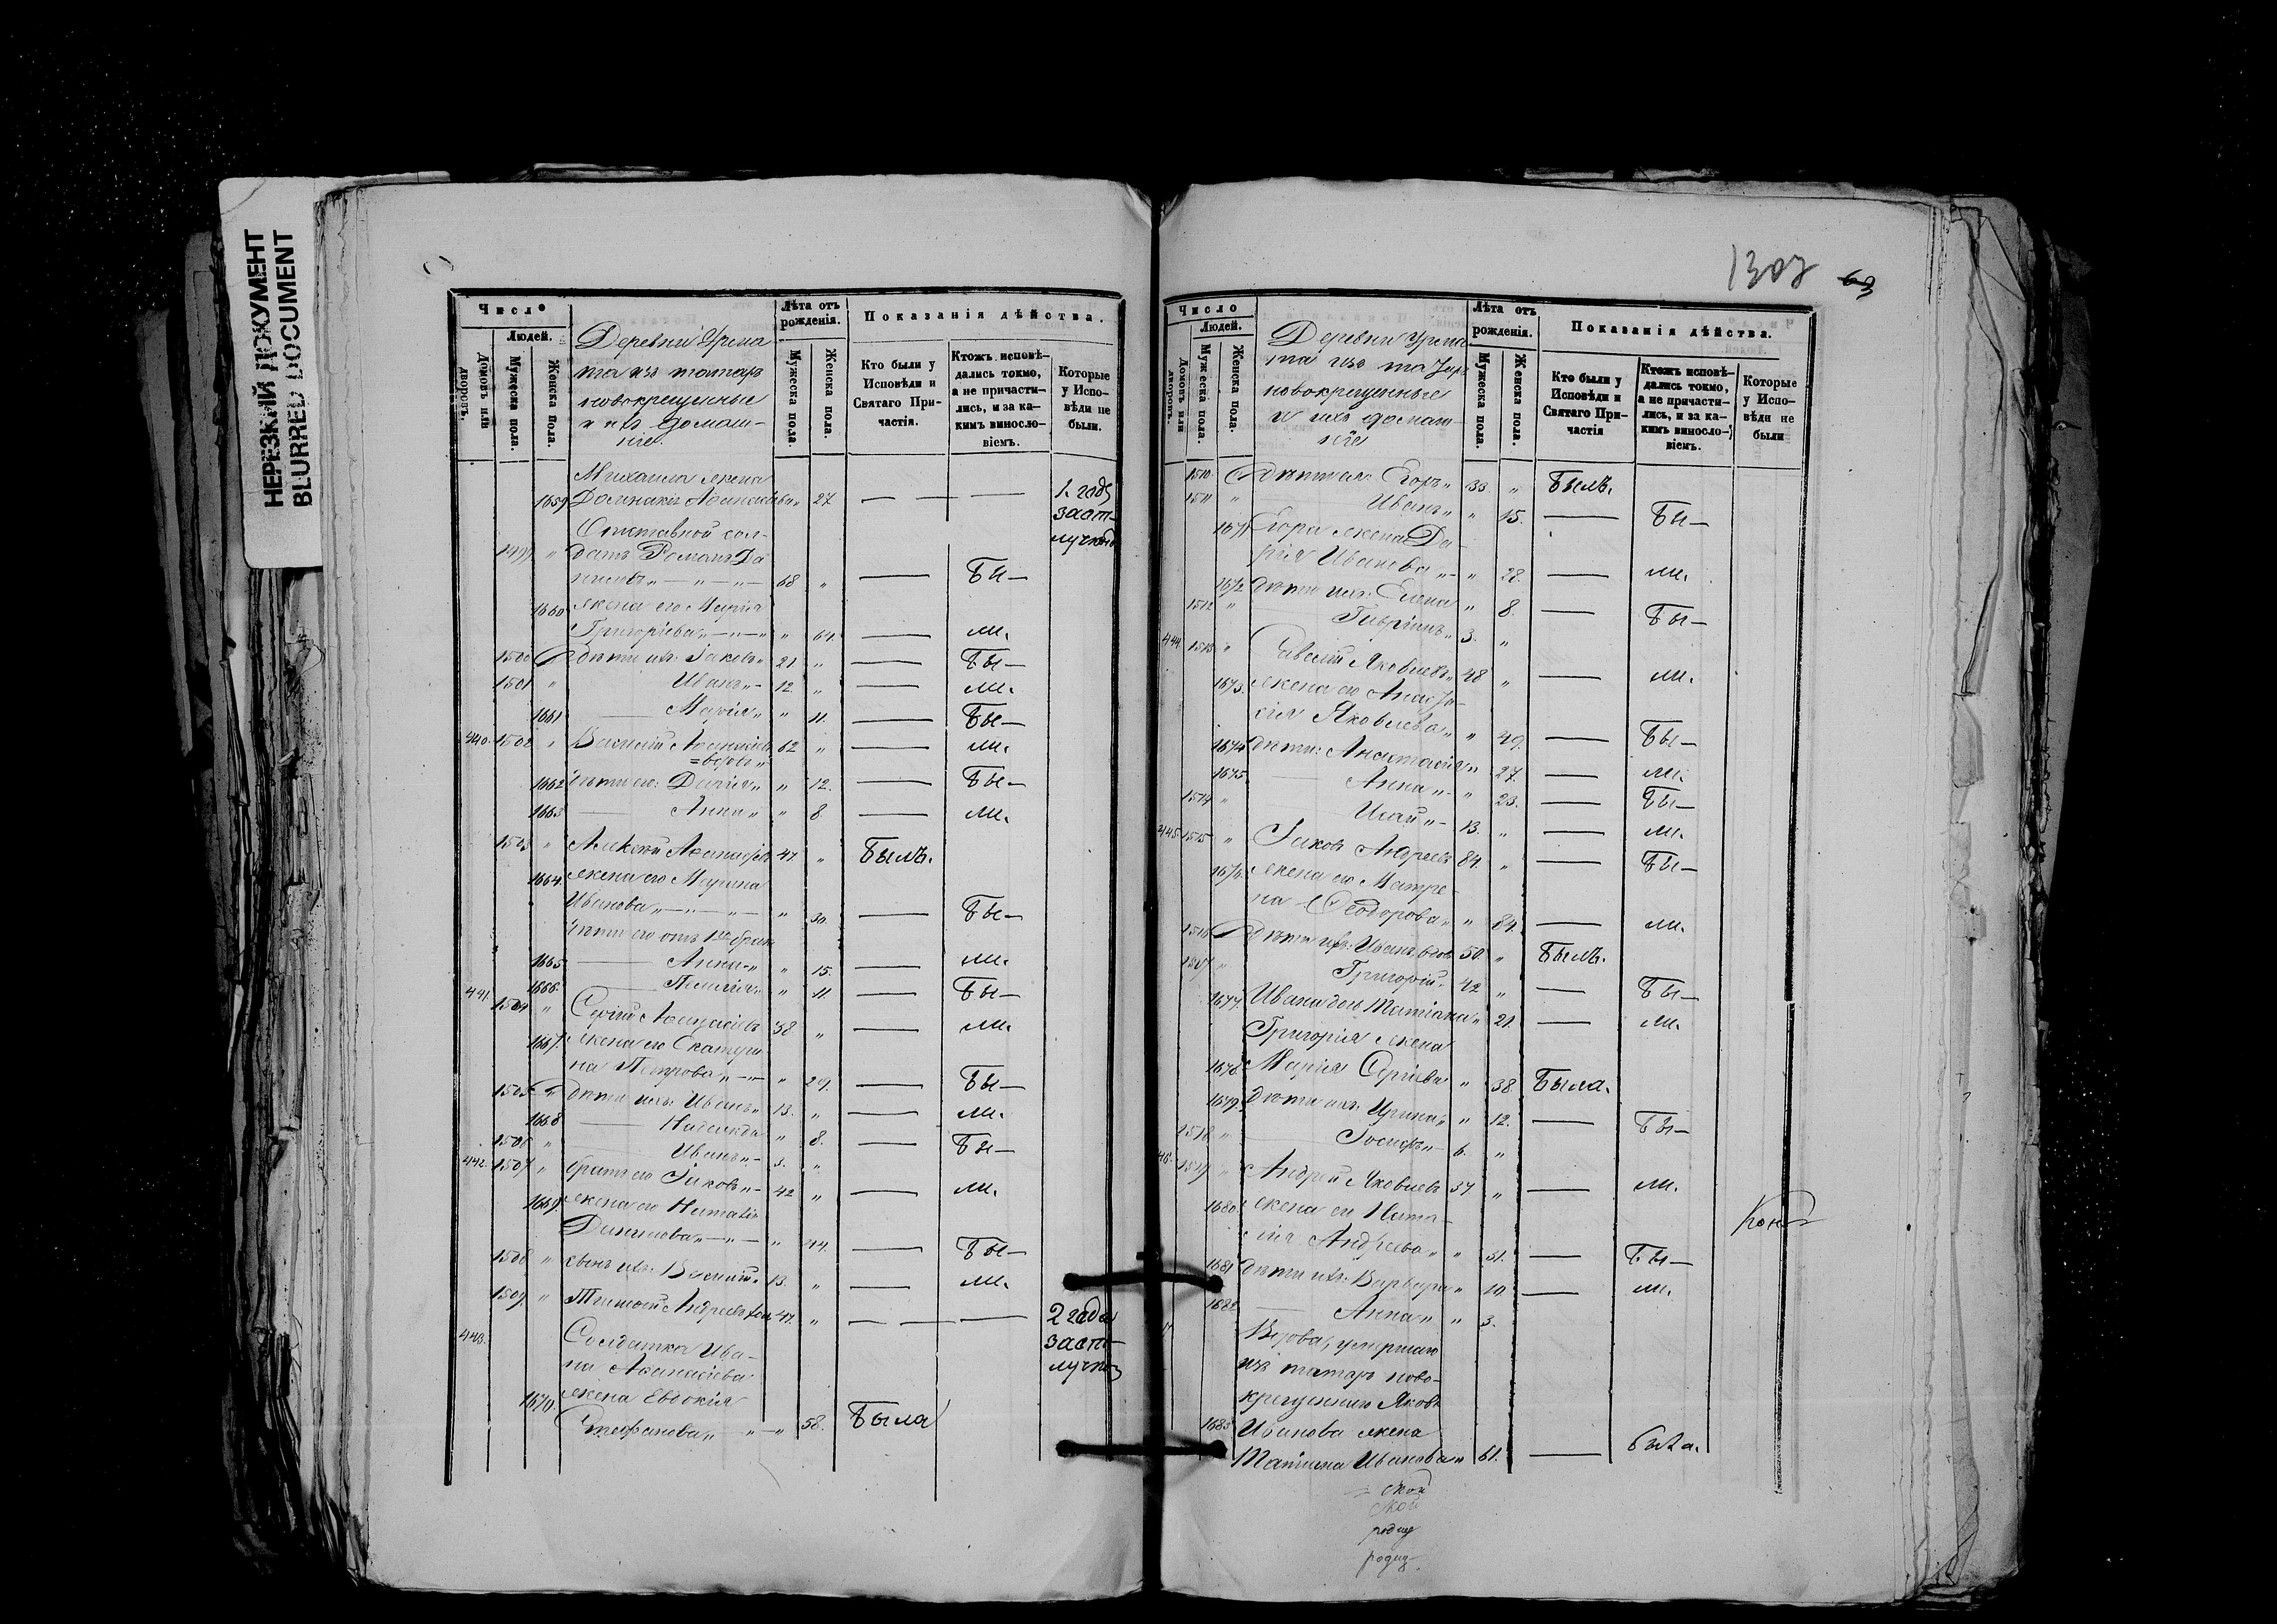 НЕРЕЗКИЙ ДОКУМЕНТ
BLURRED DOCUMENT
Число
Людей.
Домовъ или дворовъ.
Мужеска пола.
Женска пола.
Деревни Урема
та изъ татаръ
новокрещенные
и ихъ домаш-
ніе.
Лѣта отъ рожденія.
Мужеска пола.
Женска пола.
Показанія дѣйства.
Кто были у Исповѣди и Святаго Причастія.
Ктожъ исповѣдались токмо, а не причастились, и за какимъ винословіемъ.
Которые у Исповѣди не были.
Михаила жена
1659 27 1. годъ
заот-
лучкою
Отставной сол-
1499 " датъ Романъ Да
68 " — Бы—
1660 жена его Марія
Григоріева " — " — " " 64. — ли.
1500 дѣти ихъ: Іаковъ " 21. " — Бы—
1501 " Иванъ " — 12. " — ли.
1661 — Марія " " 11. — Бы—
440. 1502 " Василій Аѳанасіевъ 62 " — ли.
1662 дѣти его: Дарія " " 12. — Бы—
1663 — Анна " " 8. — ли.
1503 " Алексѣй Аѳанасіевъ 47 " Былъ.
1664. жена его Марина
Иванова " — " — " — " 30. — Бы—
дѣти его отъ 1го брака
1665 — Анна — " " 15. — ли.
1666. — Пелагія " " 11. — Бы—
441. 1504 " Сергій Аѳанасіевъ 38 " — ли.
1667. жена его Екатери
на Петрова " — " — " 29. — Бы—
1505 дѣти ихъ: Иванъ " 13. " — ли.
1668 — Надежда " 8. — Бы—
1506 " Иванъ " — 3. "
442. 1507 " братъ его Іаковъ " — 42 " — ли.
1669. жена его Наталія
" — " — " 44. — Бы—
1508 " сынъ ихъ: Василій " 13. " — ли.
1509. " Тимоѳей Андреевъ 47. " — — — 2 года
443. Солдатка Ива- заот-
на Аѳанасіева лучкою
1670. жена Евдокія
Стефанова " " — " 58. Была
1307 63
Число
Людей.
Домовъ или дворовъ.
Мужеска пола.
Женска пола.
Деревни Урема
та изъ татаръ
новокрещенные
и ихъ домаш-
ніе
Лѣта отъ рожденія.
Мужеска пола.
Женска пола.
Показанія дѣйства.
Кто были у Исповѣди и Святаго Причастія
Ктожъ исповѣдались токмо, а не причастились, и за какимъ винословіемъ.
Которые у Исповѣди не были
1510. дѣти ея: Егоръ " 33. " Былъ.
1511 " Иванъ " " 15. — Бы—
1671 Егора жена Да-
рія Иванова " — " 28. — ли.
1672 дѣти ихъ: Елена " 8. — Бы—
1512 " Гавріилъ " 3. "
444. 1513 " Яковлевъ " 48 " — ли.
1673. жена его Анаста-
сія Яковлева " " 49. — Бы—
1674 дѣти: Анастасія " 27. — ли.
1675 Анна " — " 23. — Бы—
1514 " " — 13. " — ли.
445. 1515 " Іаковъ Андреевъ 84. " — Бы—
1676. жена его Матре-
на Ѳеодорова " " 84. — ли.
1516 дѣти ихъ: Иванъ вдовъ 50. " Былъ.
1517 " Григорій " 42 " — Бы—
1677 Ивана дочь Татіана " 21. — ли.
Григорія жена
1678 Марія Сергіева " 38 Была.
1679. дѣти ихъ: Ирина " " 12. — Бы—
1518 " — Іосифъ " — 6. "
46. 1519 " Андрей Яковлевъ 37 " — ли.
1680 жена его Ната-
лія Андреева " " 31. — Бы—
1681 дѣти ихъ: Варвара " 10. — ли.
1682 — Анна " " 3.
Вдова, умершаго
изъ татаръ ново-
крещеннаго Якова
1683 Иванова жена
Татіана Иванова " 61. — Была.